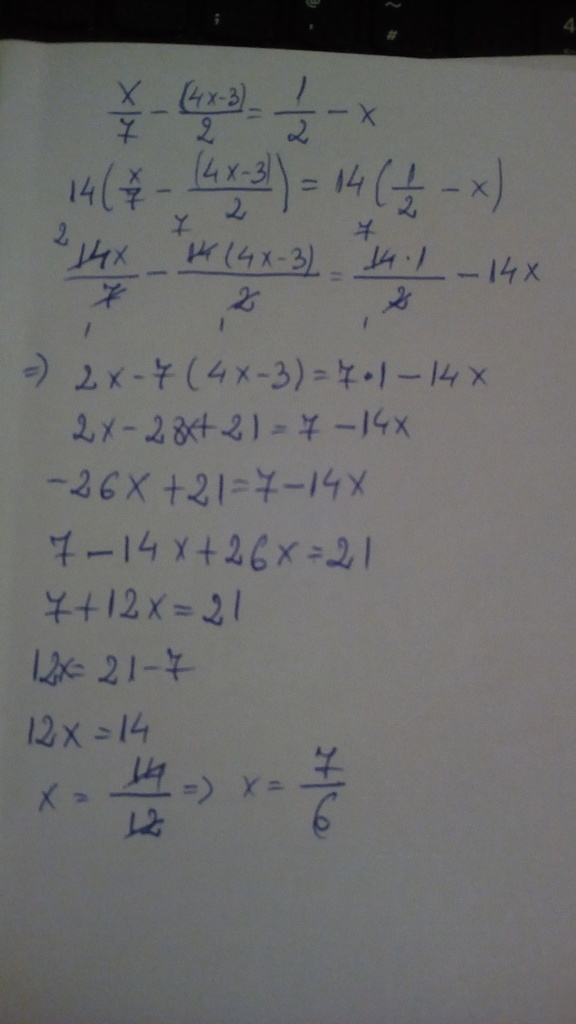 x/7 - (4x-3)/2 = 1/2 - x
14(x/7 - (4x-3)/2) = 14(1/2 - x)
2 7 7
14x/7 - 14(4x-3)/2 = 14·1/2 - 14x
1 1 1
=> 2x-7(4x-3)=7·1-14x
2x-28x+21=7-14x
-26x+21=7-14x
7-14x+26x=21
7+12x=21
12x=21-7
12x=14
x = 14/12 => x = 7/6